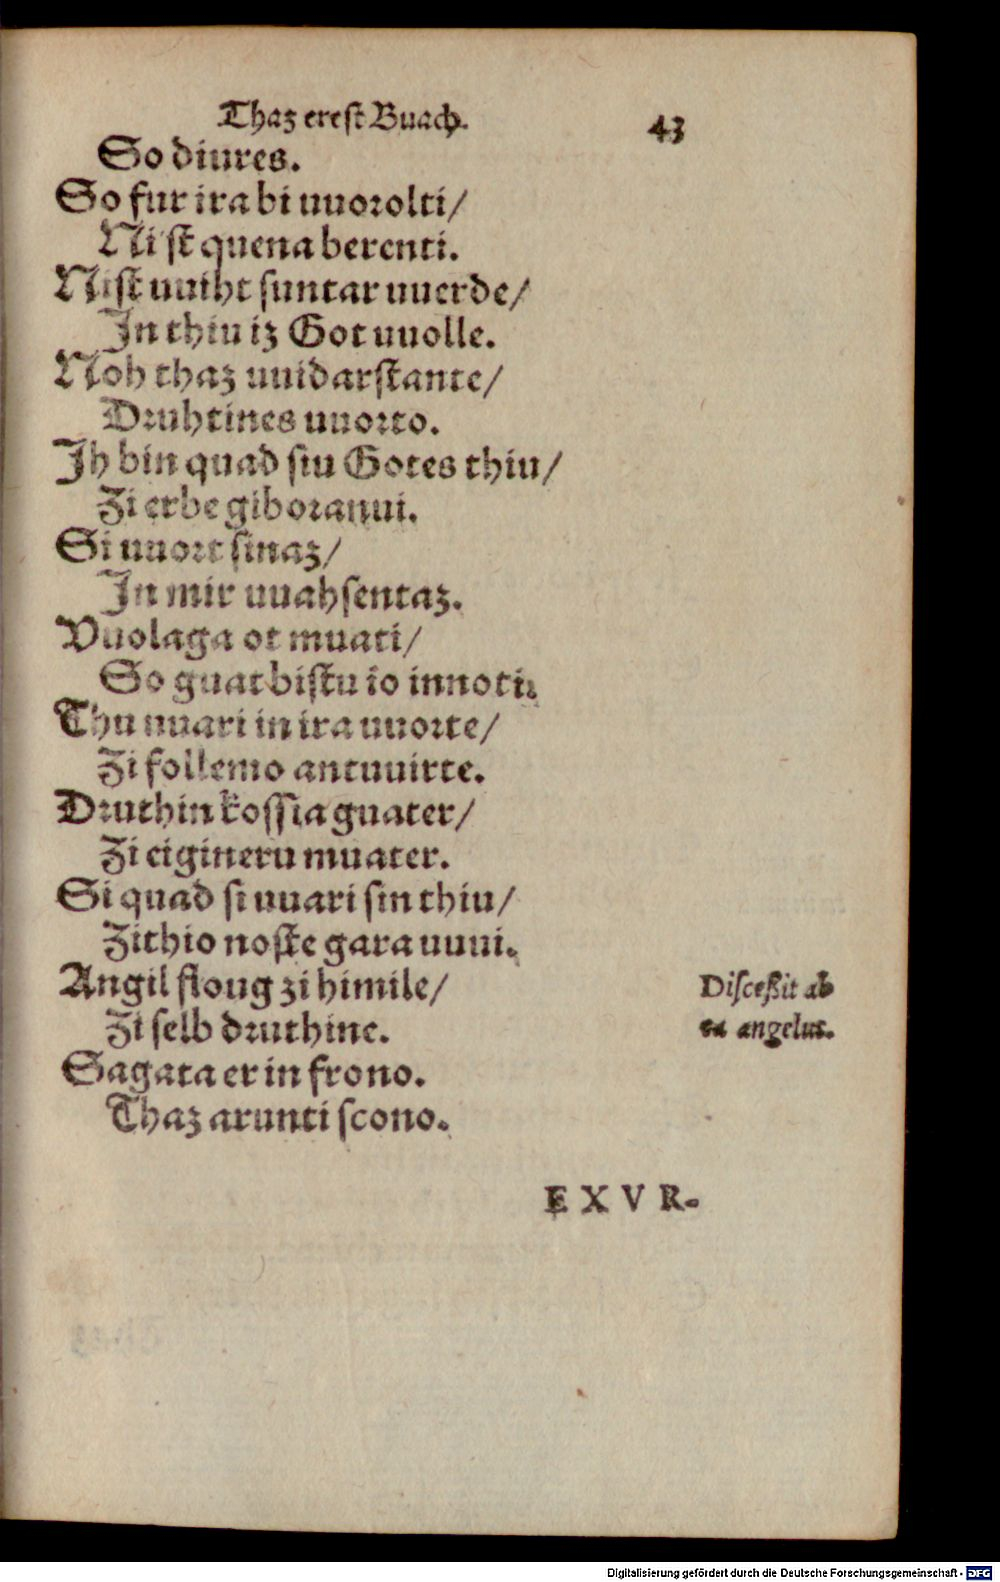 Thaz erest Buach.
43
So diures.
So fur ira bi uuorolti/
Ni st quena berenti.
Nist uuiht suntar uuerde/
In thiu iz Got uuolle.
Noh thaz uuidarstante/
Druhtines uuorto.
Ih bin quad siu Gotes thiu/
Zi erbe giboranui.
Si uuort sinaz/
In mir uuahsentaz.
Vuolaga ot muati/
So guat bistu io innoti.
Thu uuari in ira uuorte/
Zi follemo antuuirte.
Druthin kossia guater/
Zi eigineru muater.
Si quad si uuari sin thiu/
Zithio noste gara uuui.
Angil floug zi himile/
Zi selb druthine.
Sagata er in frono.
Thaz arunti scono.
Disceßit ab
ea angelus.
EXVR.
Digitalisierung gefördert durch die Deutsche Forschungsgemeinschaft - DFG